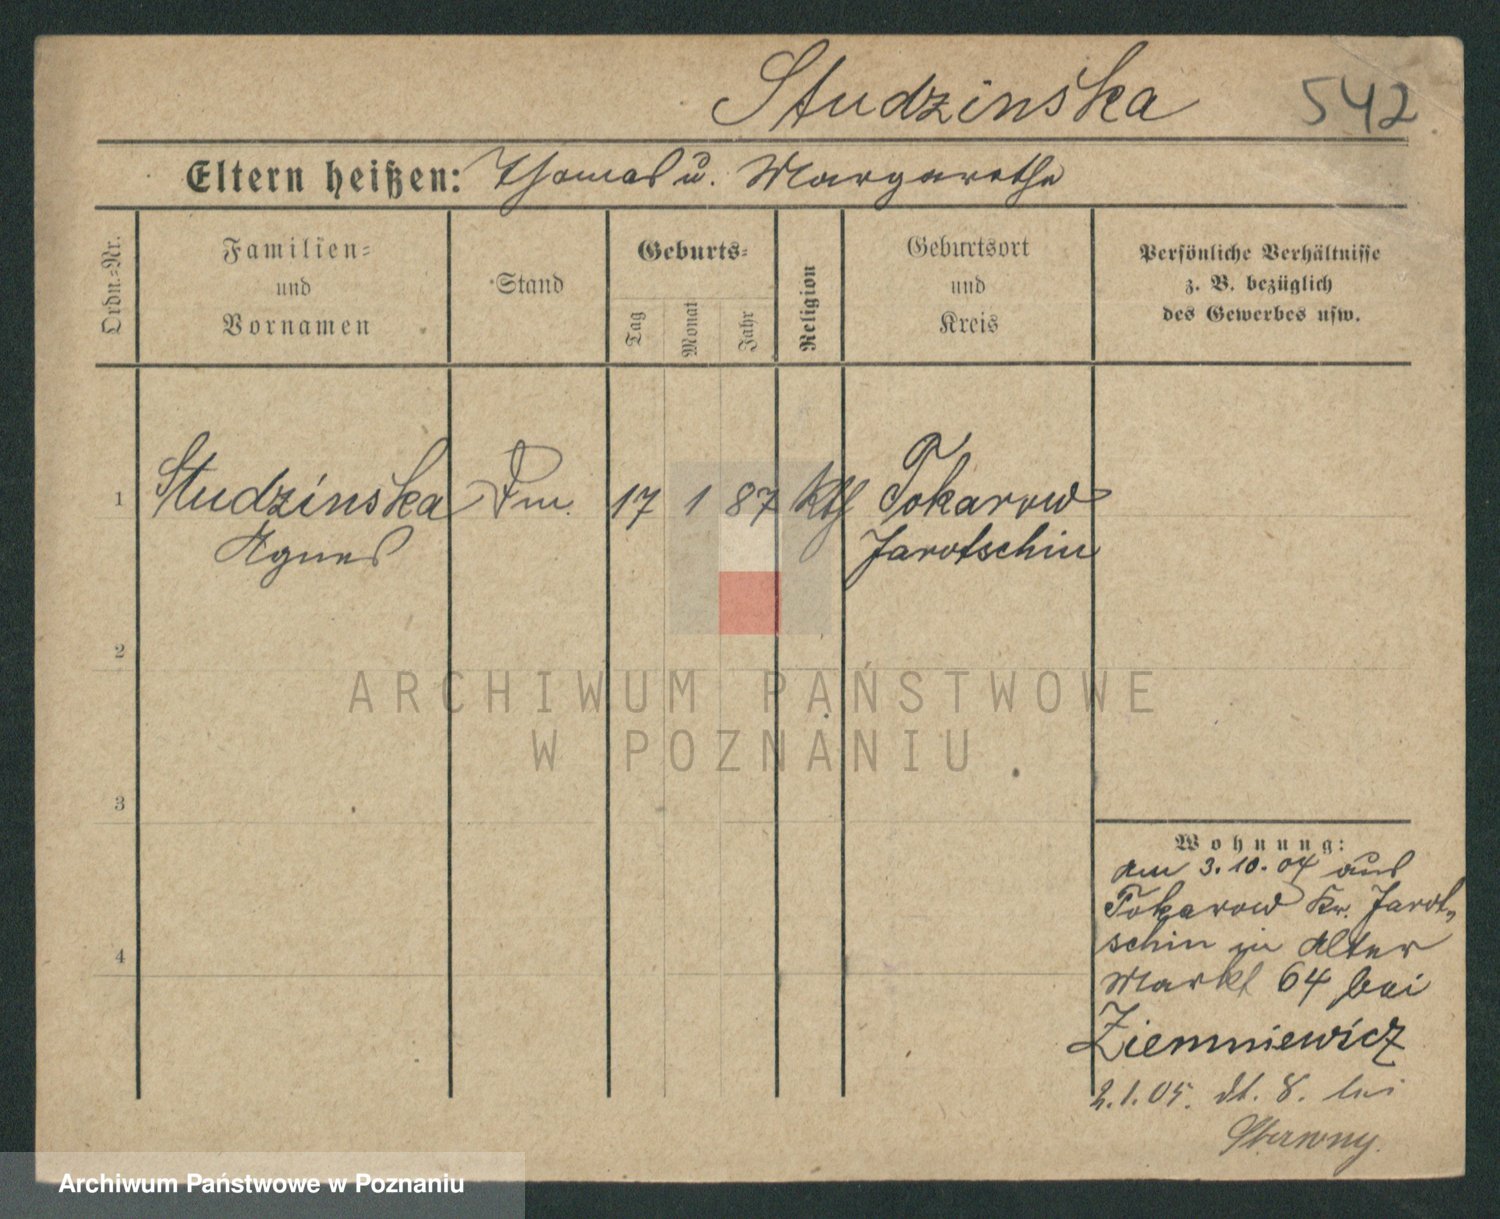 Studzinska 542
Eltern heißen: Thomas u. Margarethe
Ordn.-Nr.
Familien-
und
Vornamen
Stand
Geburts-
Tag
Monat
Jahr
Religion
Geburtsort
und
Kreis
Persönliche Verhältnisse
z. B. bezüglich
des Gewerbes usw.
1 Studzinska 17 1 87 Kth Tokarow
Agnes Jarotschin
2
3
4
ARCHIWUM PAŃSTWOWE
W POZNANIU
Wohnung:
am 3.10.04 aus
Tokarow Kr. Jarot-
schin in Alter
Markt 64 bei
Ziemniewicz
2.1.05. dt. 8. bei
Archiwum Państwowe w Poznaniu